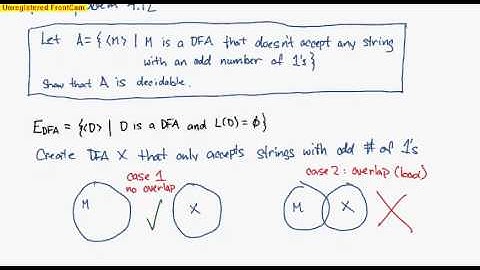 Unregistered FrontCam
problem 4.12
Let A = { ⟨M⟩ | M is a DFA that doesn't accept any string
with an odd number of 1's }
Show that A is decidable.
E_DFA = {⟨D⟩ | D is a DFA and L(D) = ∅}
Create DFA X that only accepts strings with odd # of 1's
case 1
no overlap
case 2: overlap (bad)
M
X
M
X